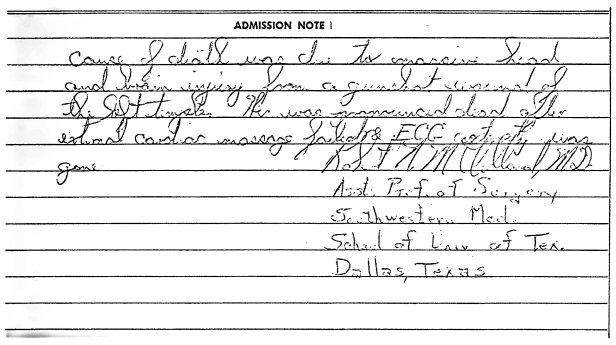 ADMISSION NOTE
Cause of death was due to massive head
and brain injury from a gunshot wound of
the left temple. He was pronounced dead after
external cardiac massage failed & ECG activity was
gone
Robert N. McClelland, M.D.
Asst. Prof. of Surgery
Southwestern Med.
School of Univ of Tex.
Dallas, Texas